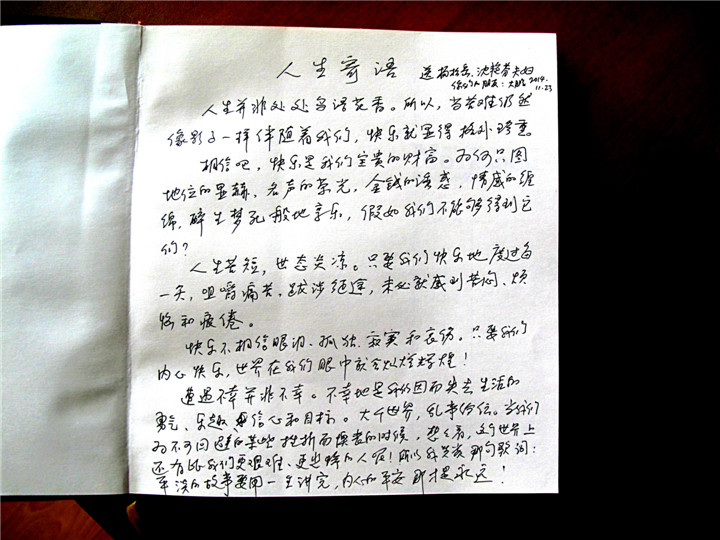 人生寄语 送杨松岳、沈艳春夫妇
你们的朋友：大鹏 2014.
11.23
人生并非处处鸟语花香。所以，当苦难仍然
像影子一样伴随着我们，快乐就显得格外珍重。
相信吧，快乐是我们宝贵的财富。为何只图
地位的显赫、名声的荣光、金钱的诱惑、情感的缠
绵，醉生梦死般地享乐，假如我们不能够得到它
们？
人生苦短，世态炎凉。只要我们快乐地度过每
一天，咀嚼痛苦、跋涉征途，未必就感到苦闷、烦
恼和疲倦。
快乐不相信眼泪、孤独、寂寞和哀伤。只要我们
内心快乐，世界在我们眼中就会灿烂辉煌！
遭遇不幸并非不幸。不幸地是我们因而失去生活的
勇气、乐趣、信心和目标。大千世界，乱事纷纭。当我们
为不可回避的某些挫折而懊丧的时候，想想看，这个世界上
还有比我们更艰难、更悲辣的人呢！所以我喜爱那句歌词：
平淡的故事要用一生讲完，内心的平安那才是永远！